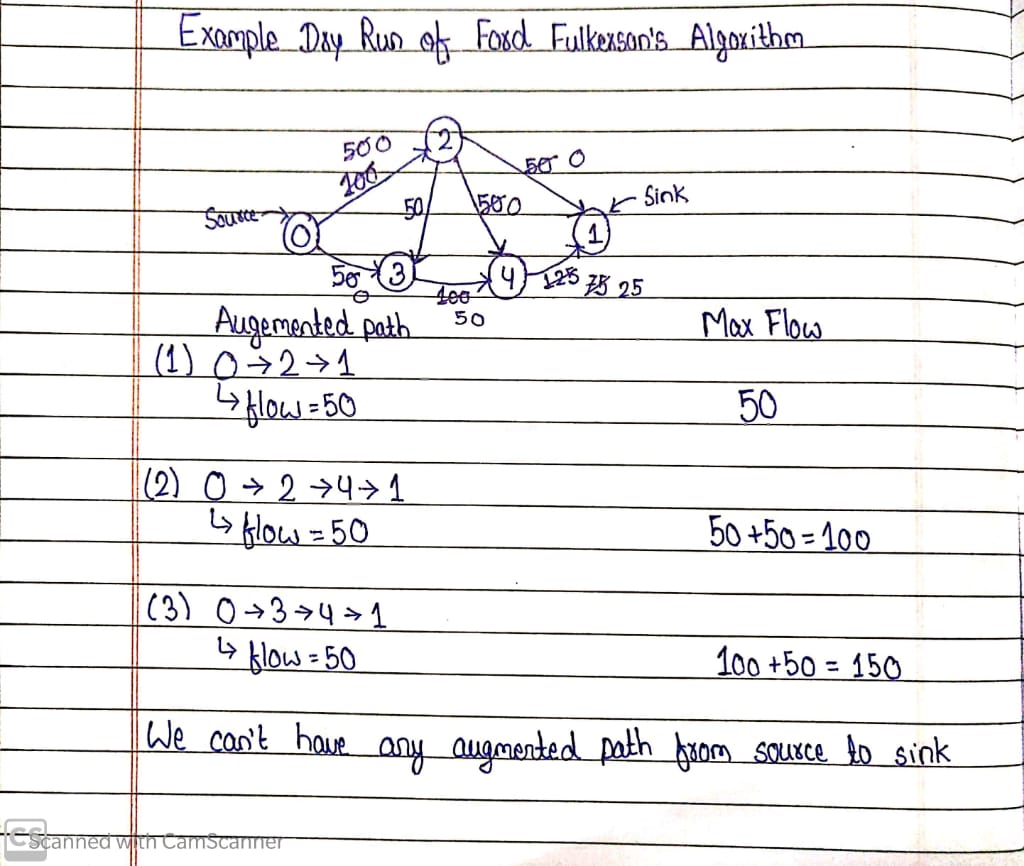 Example Dry Run of Ford Fulkerson's Algorithm
500
2
100
50 0
Source
50
50 0
Sink
0
1
50
3
4
125 75 25
0
100
50
Augemented path
Max Flow
(1) 0→2→1
↳ flow = 50
50
(2) 0 → 2 →4→ 1
↳ flow = 50
50 +50 = 100
(3) 0→3→4→1
↳ flow = 50
100 +50 = 150
We can't have any augmented path from source to sink
CS
Scanned with CamScanner